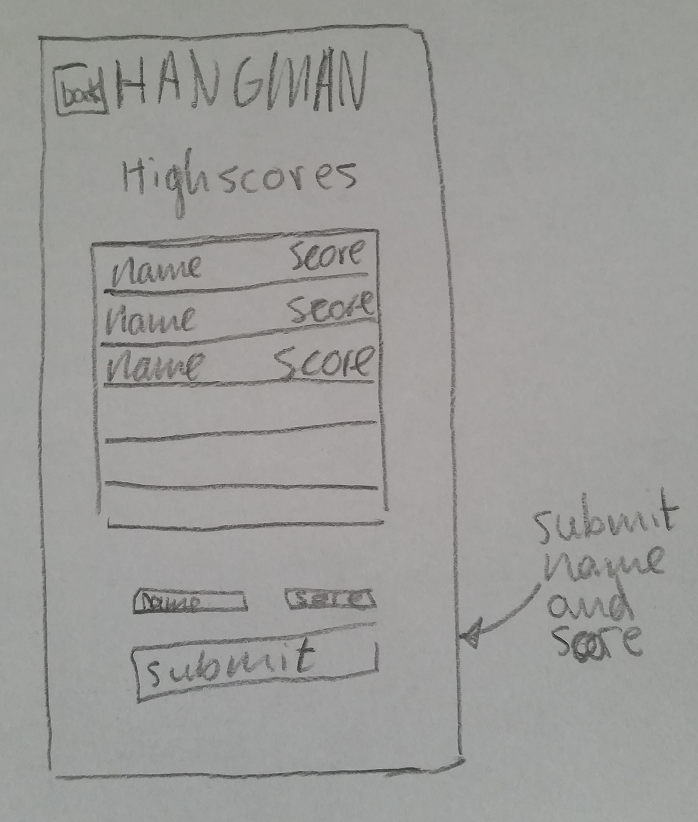 back HANGMAN
Highscores
name score
name score
name score
name score
submit
submit
name
and
score